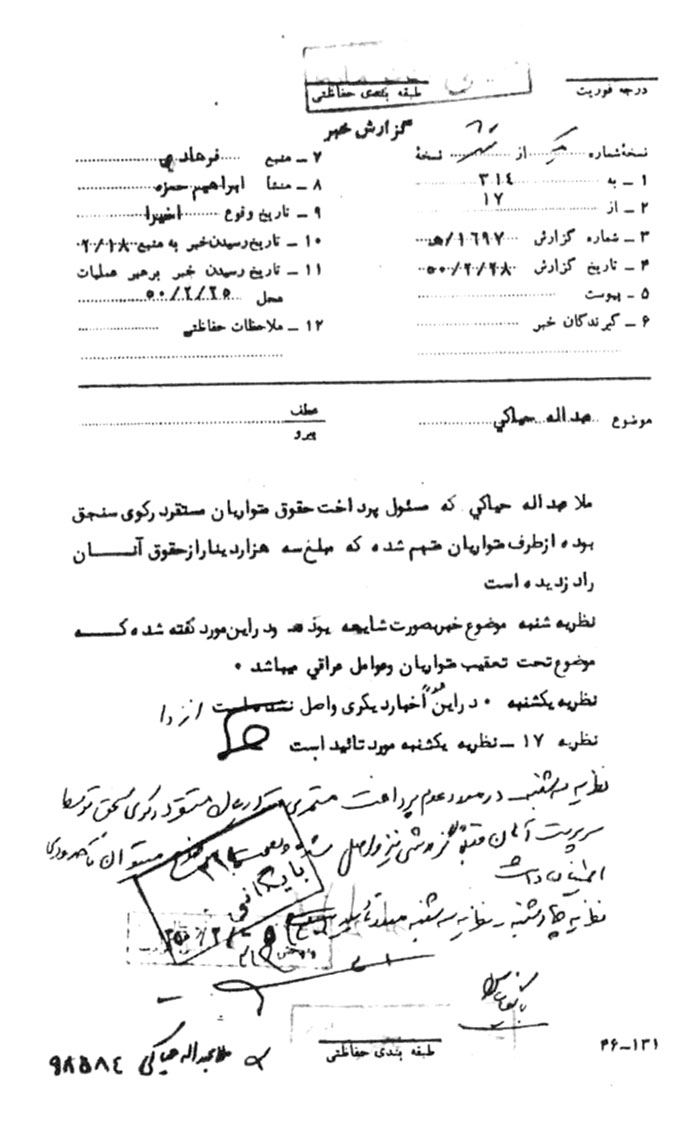 خیلی محرمانه
طبقه بندی حفاظتی
درجه فوریت
گزارش خبر
نسخهٔ شماره از نسخهٔ
۱ ـ به ۳۱۴
۲ ـ از ۱۷
۳ ـ شماره گزارش ۱۶۹۷/ه‍
۴ ـ تاریخ گزارش ۵۰/۲/۲۸
۵ ـ پیوست
۶ ـ گیرندگان خبر
۷ ـ منبع فرهادی
۸ ـ منشأ ابراهیم حمزه
۹ ـ تاریخ وقوع اخیرا
۱۰ ـ تاریخ رسیدن خبر به منبع ۲/۱۸
۱۱ ـ تاریخ رسیدن خبر برهبر عملیات
محل ۵۰/۲/۲۵
۱۲ ـ ملاحظات حفاظتی
موضوع عبداله حیاکی
عطف
پیرو
ملا عبداله حیاکی که مسئول پرداخت حقوق متواریان مستقر در کوی سنجق
بوده از طرف متواریان متهم شده که مبلغ سه هزار دینار از حقوق آنــان
را دزدیده است
نظریه شنبه موضوع خبر بصورت شایعه بوده و در این مورد گفته شده کــه
موضوع تحت تعقیب متواریان و عوامل عراقی میباشد ۰
نظریه یکشنبه ۰ در این مورد اخبار دیگری واصل نشده است
نظریه ۱۷ ـ نظریه یکشنبه مورد تائید است
نظریه سه‌شنبه در مورد عدم پرداخت مستمری متواریان مستقر در کوی سنجق توسط
سرپرست آنان قبلاً گزارشی نیز واصل شده میتوان تا حدودی
اطمینان داشت
نظریه چهارشنبه ـ نظریه سه‌شنبه مورد تأیید است
بایگانی
بایگانی شود
طبقه بندی حفاظتی
۴۶ـ۱۳۱
ملا عبداله حیاکی ۹۸۵۸۴